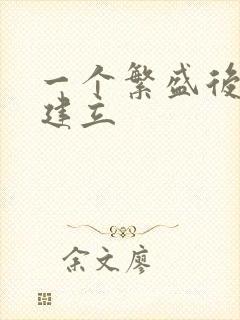 一个繁盛後
建立
余文廖